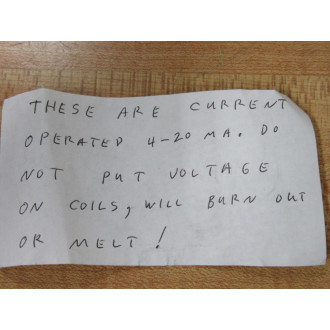 THESE ARE CURRENT
OPERATED 4-20 MA. DO
NOT PUT VOLTAGE
ON COILS, WILL BURN OUT
OR MELT!